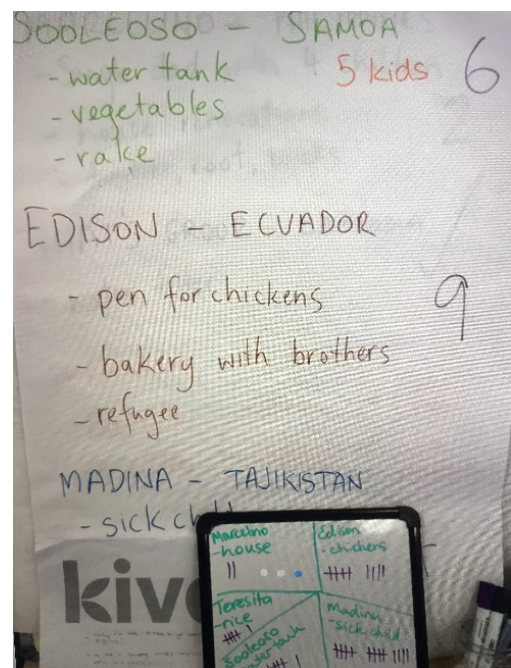 SOOLEOSO - SAMOA
- water tank 5 kids 6
- vegetables
- rake
EDISON - ECUADOR
- pen for chickens 9
- bakery with brothers
- refugee
MADINA - TAJIKISTAN
- sick
kiv
Marcelino
- house
Edison
- chichers
Teresita
- rice
Sooleoso
Madina
- sick child